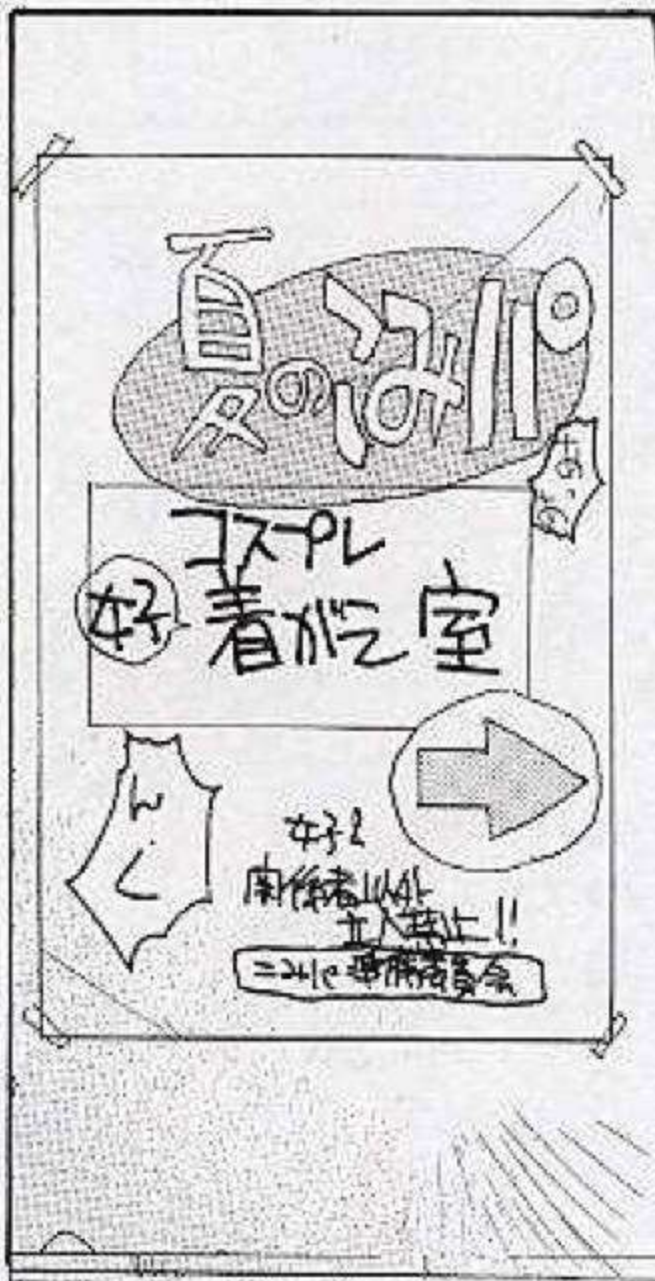 夏のこみパ
コスプレ
女子 着がえ室
んしく
女子&
関係者以外
立入禁止!!
こみパ準備委員会